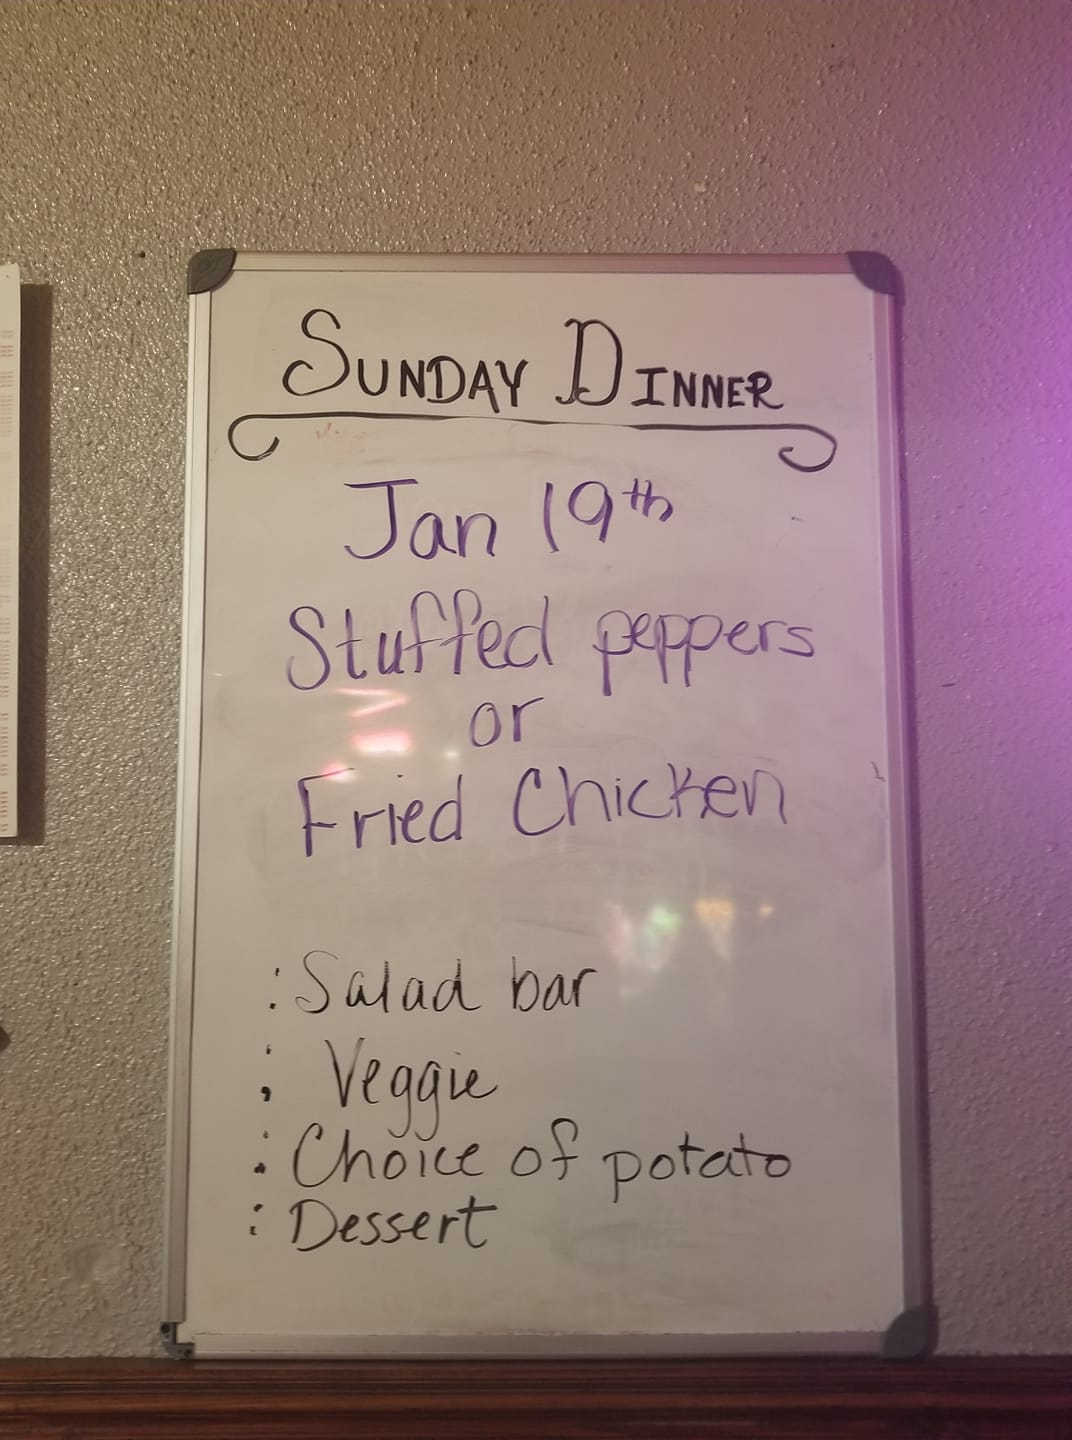 SUNDAY DINNER
Jan 19th
Stuffed peppers
or
Fried Chicken
: Salad bar
: Veggie
: Choice of potato
: Dessert